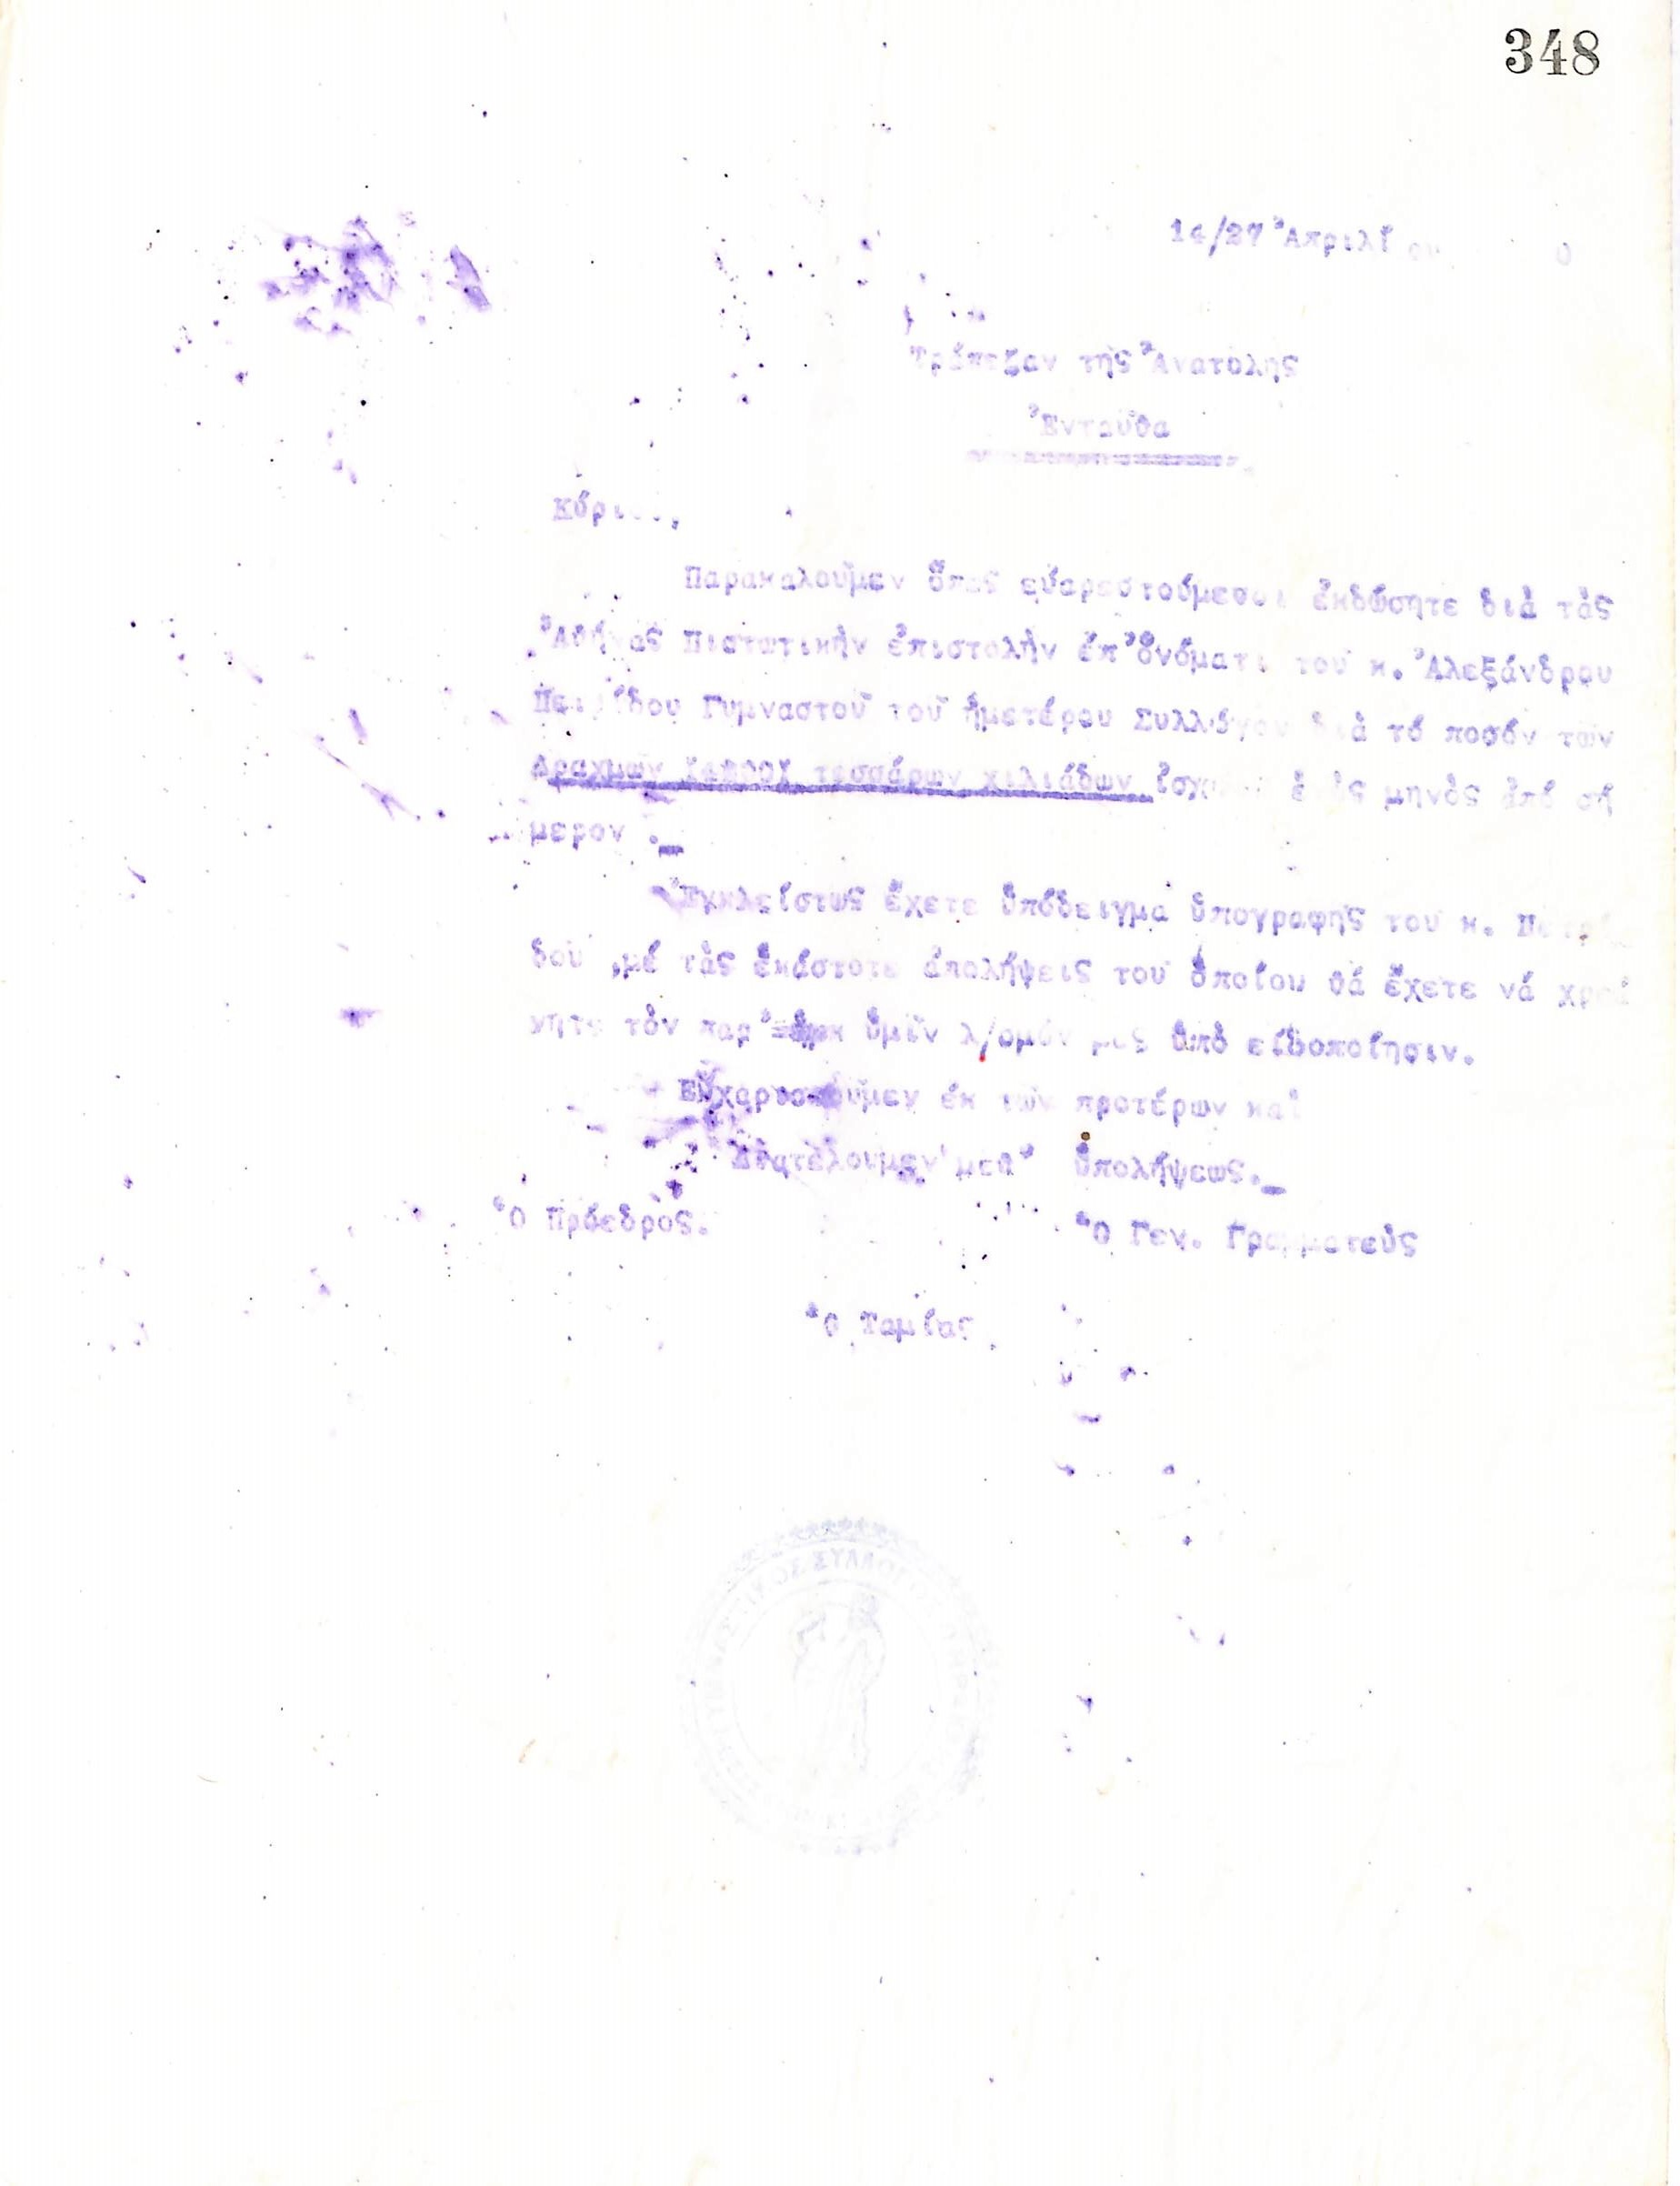 348
14/27 Ἀπριλίου
Τράπεζαν τῆς Ἀνατολῆς
Ἐνταῦθα
Παρακαλοῦμεν ὅπως εὐαρεστούμενοι ἐκδώσητε διὰ τὰς
Ἀθήνας Πιστωτικὴν ἐπιστολὴν ἐπ' ὀνόματι τοῦ κ. Ἀλεξάνδρου
Γυμναστοῦ τοῦ ἡμετέρου Συλλόγου διὰ τό ποσόν τῶν
Δραχμῶν τεσσάρων χιλιάδων μηνὸς ἀπό σή
μερον .-
Ἐγκλείστως ἔχετε ὑπόδειγμα ὑπογραφῆς τοῦ κ.
δου ,μέ τὰς ἑκάστοτε ἀπολήψεις τοῦ ὁποίου θά ἔχετε νά
τόν παρ' ὑμῖν λ/σμόν μας ὑπό εἰδοποίησιν.
ἐκ τῶν προτέρων καί
Διατελοῦμεν μεθ' ὑπολήψεως.-
Ὁ Πρόεδρος. Ὁ Γεν. Γραμματεύς
Ὁ Ταμίας